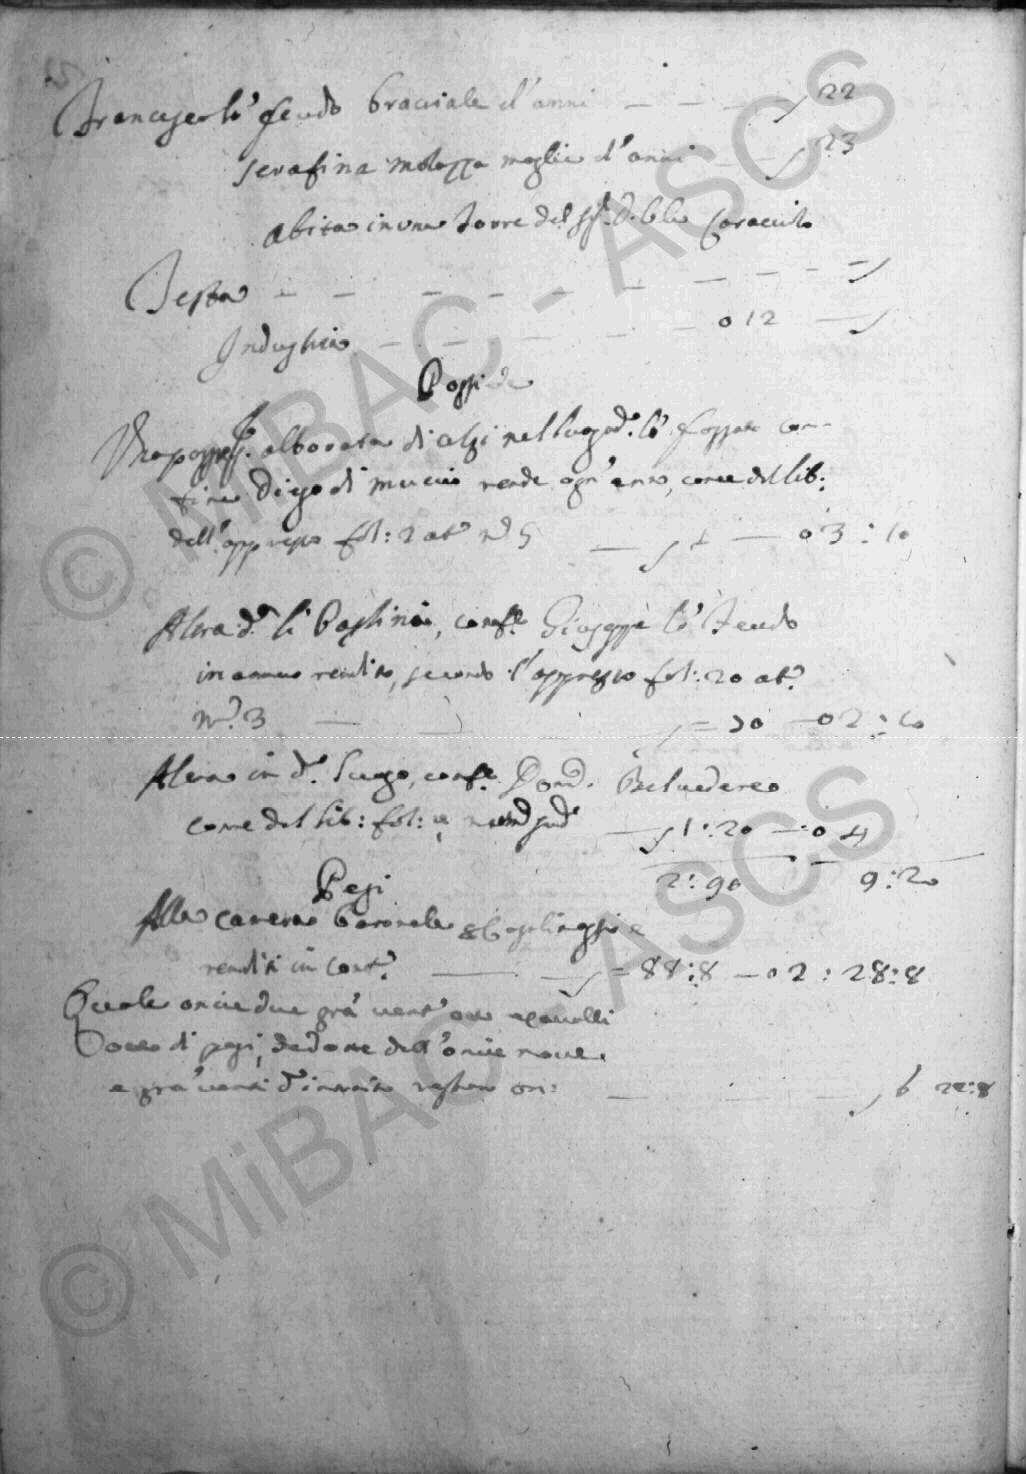 Francesco lo feudo bracciale d'anni — — — — 22
serafina molozza moglie d'anni — — 23
abita in una torre del Caracciolo
Testa — — — — — — — — —
Industria — — — — — 012 —
Posside
Una possess. alborata di celzi nel luogo d.º lo fossato con-
fine Diego di muccio rende ogn'anno, come del lib:
dell'apprezzo fol: 2 at.º n.º 5 — — 03:10
Altra d.ª li Paglinia, conf.e Giuseppe lo feudo
in annuo rendito, secondo l'apprezzo fol: 20 at.º
n.º 3 — = 70 — 02:10
Altra in d.º luogo, conf.e Dom.º Belvedere
come del lib: fol: — 1:20 — : 04
2:90 9:20
Pesi
Alla camera baronale
renditi in cont.º — — = 88:8 — 02:28:8
Quale oncie due grã vent'otto e cavalli
otto di pesi, dedotte dall'oncie nove
e grã venti d'introito restano on: — — — 6 22:8
© MiBAC - ASCS
© MiBAC - ASCS